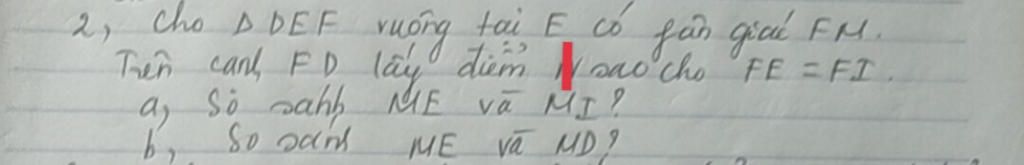 2, Cho Δ DEF vuông tại E có phân giác FM.
Trên cạnh FD lấy điểm sao cho FE = FI.
a, So sánh ME và MI?
b, So sánh ME và MD?